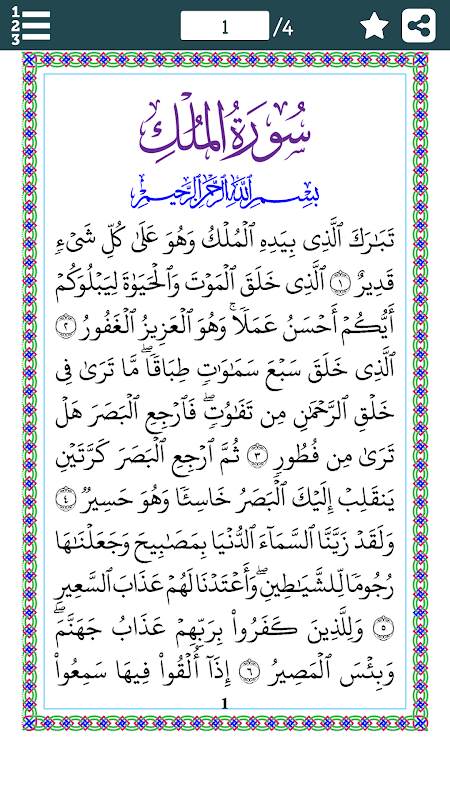 1
2
3
1 /4
سُورَةُ الْمُلْكِ
بِسْمِ اللَّهِ الرَّحْمَٰنِ الرَّحِيمِ
تَبَارَكَ الَّذِي بِيَدِهِ الْمُلْكُ وَهُوَ عَلَىٰ كُلِّ شَيْءٍ
قَدِيرٌ ١ الَّذِي خَلَقَ الْمَوْتَ وَالْحَيَوٰةَ لِيَبْلُوَكُمْ
أَيُّكُمْ أَحْسَنُ عَمَلًا ۚ وَهُوَ الْعَزِيزُ الْغَفُورُ ٢
الَّذِي خَلَقَ سَبْعَ سَمَٰوَٰتٍ طِبَاقًا ۖ مَّا تَرَىٰ فِي
خَلْقِ الرَّحْمَٰنِ مِن تَفَٰوُتٍ ۖ فَارْجِعِ الْبَصَرَ هَلْ
تَرَىٰ مِن فُطُورٍ ٣ ثُمَّ ارْجِعِ الْبَصَرَ كَرَّتَيْنِ
يَنقَلِبْ إِلَيْكَ الْبَصَرُ خَاسِئًا وَهُوَ حَسِيرٌ ٤
وَلَقَدْ زَيَّنَّا السَّمَاءَ الدُّنْيَا بِمَصَٰبِيحَ وَجَعَلْنَٰهَا
رُجُومًا لِّلشَّيَٰطِينِ ۖ وَأَعْتَدْنَا لَهُمْ عَذَابَ السَّعِيرِ
٥ وَلِلَّذِينَ كَفَرُوا۟ بِرَبِّهِمْ عَذَابُ جَهَنَّمَ ۖ
وَبِئْسَ الْمَصِيرُ ٦ إِذَآ أُلْقُوا۟ فِيهَا سَمِعُوا۟
1